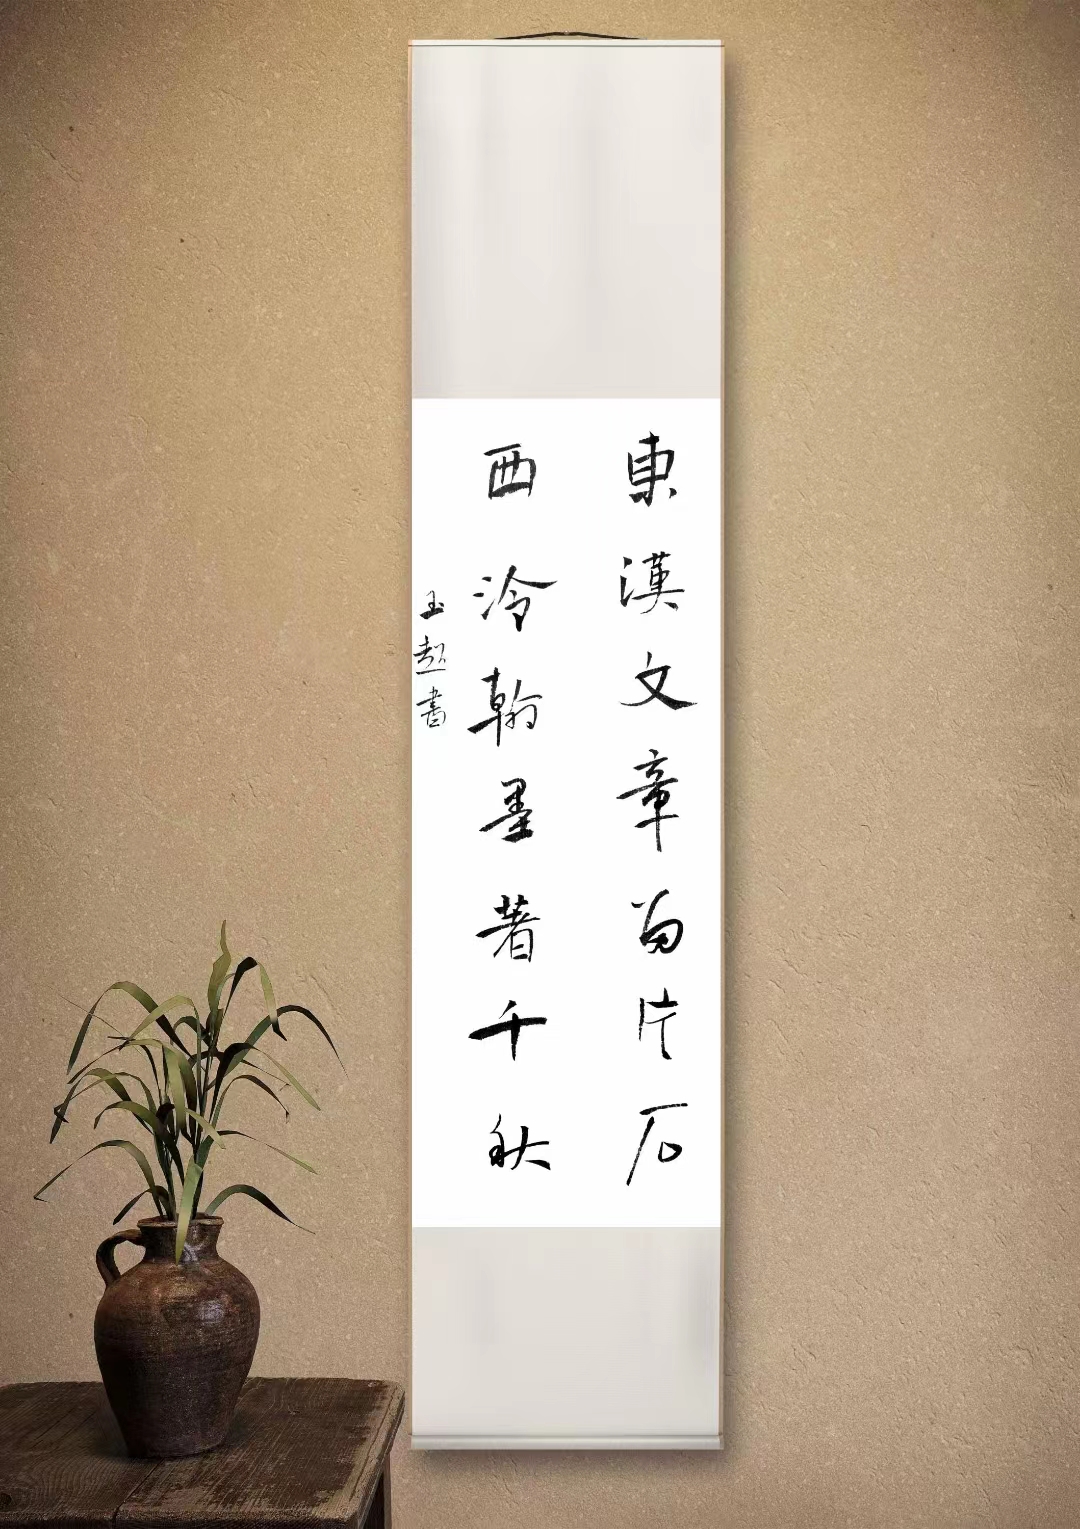 東漢文章留片石
西泠翰墨著千秋
玉超書